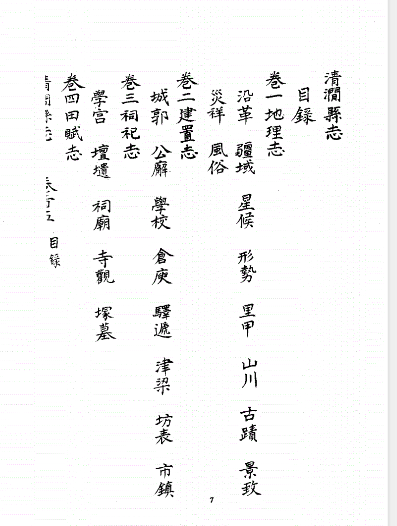 清澗縣志
目錄
卷一地理志
沿革 疆域 星候 形勢 里甲 山川 古蹟 景致
災祥 風俗
卷二建置志
城郭 公廨 學校 倉庾 驛遞 津梁 坊表 市鎮
卷三祠祀志
學宮 壇壝 祠廟 寺觀 塚墓
卷四田賦志
目錄
7